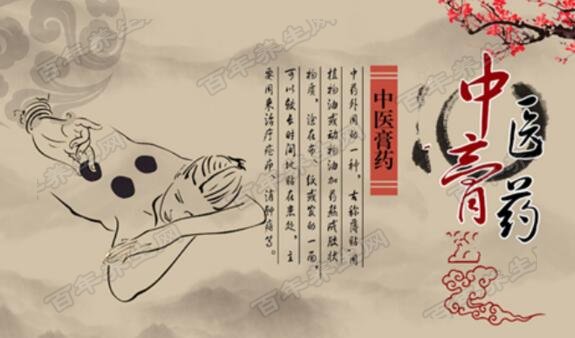 中医
膏药
中医膏药
中药外用的一种，古称薄贴，用
植物油或动物油加药熬成胶状
物质，涂在布、纸或皮的一面，
可以较长时间地贴在患处，主
要用来治疗疮疖、消肿痛等。
百年养生网
百年养生网
百年养生网
百年养生网
百年养生网